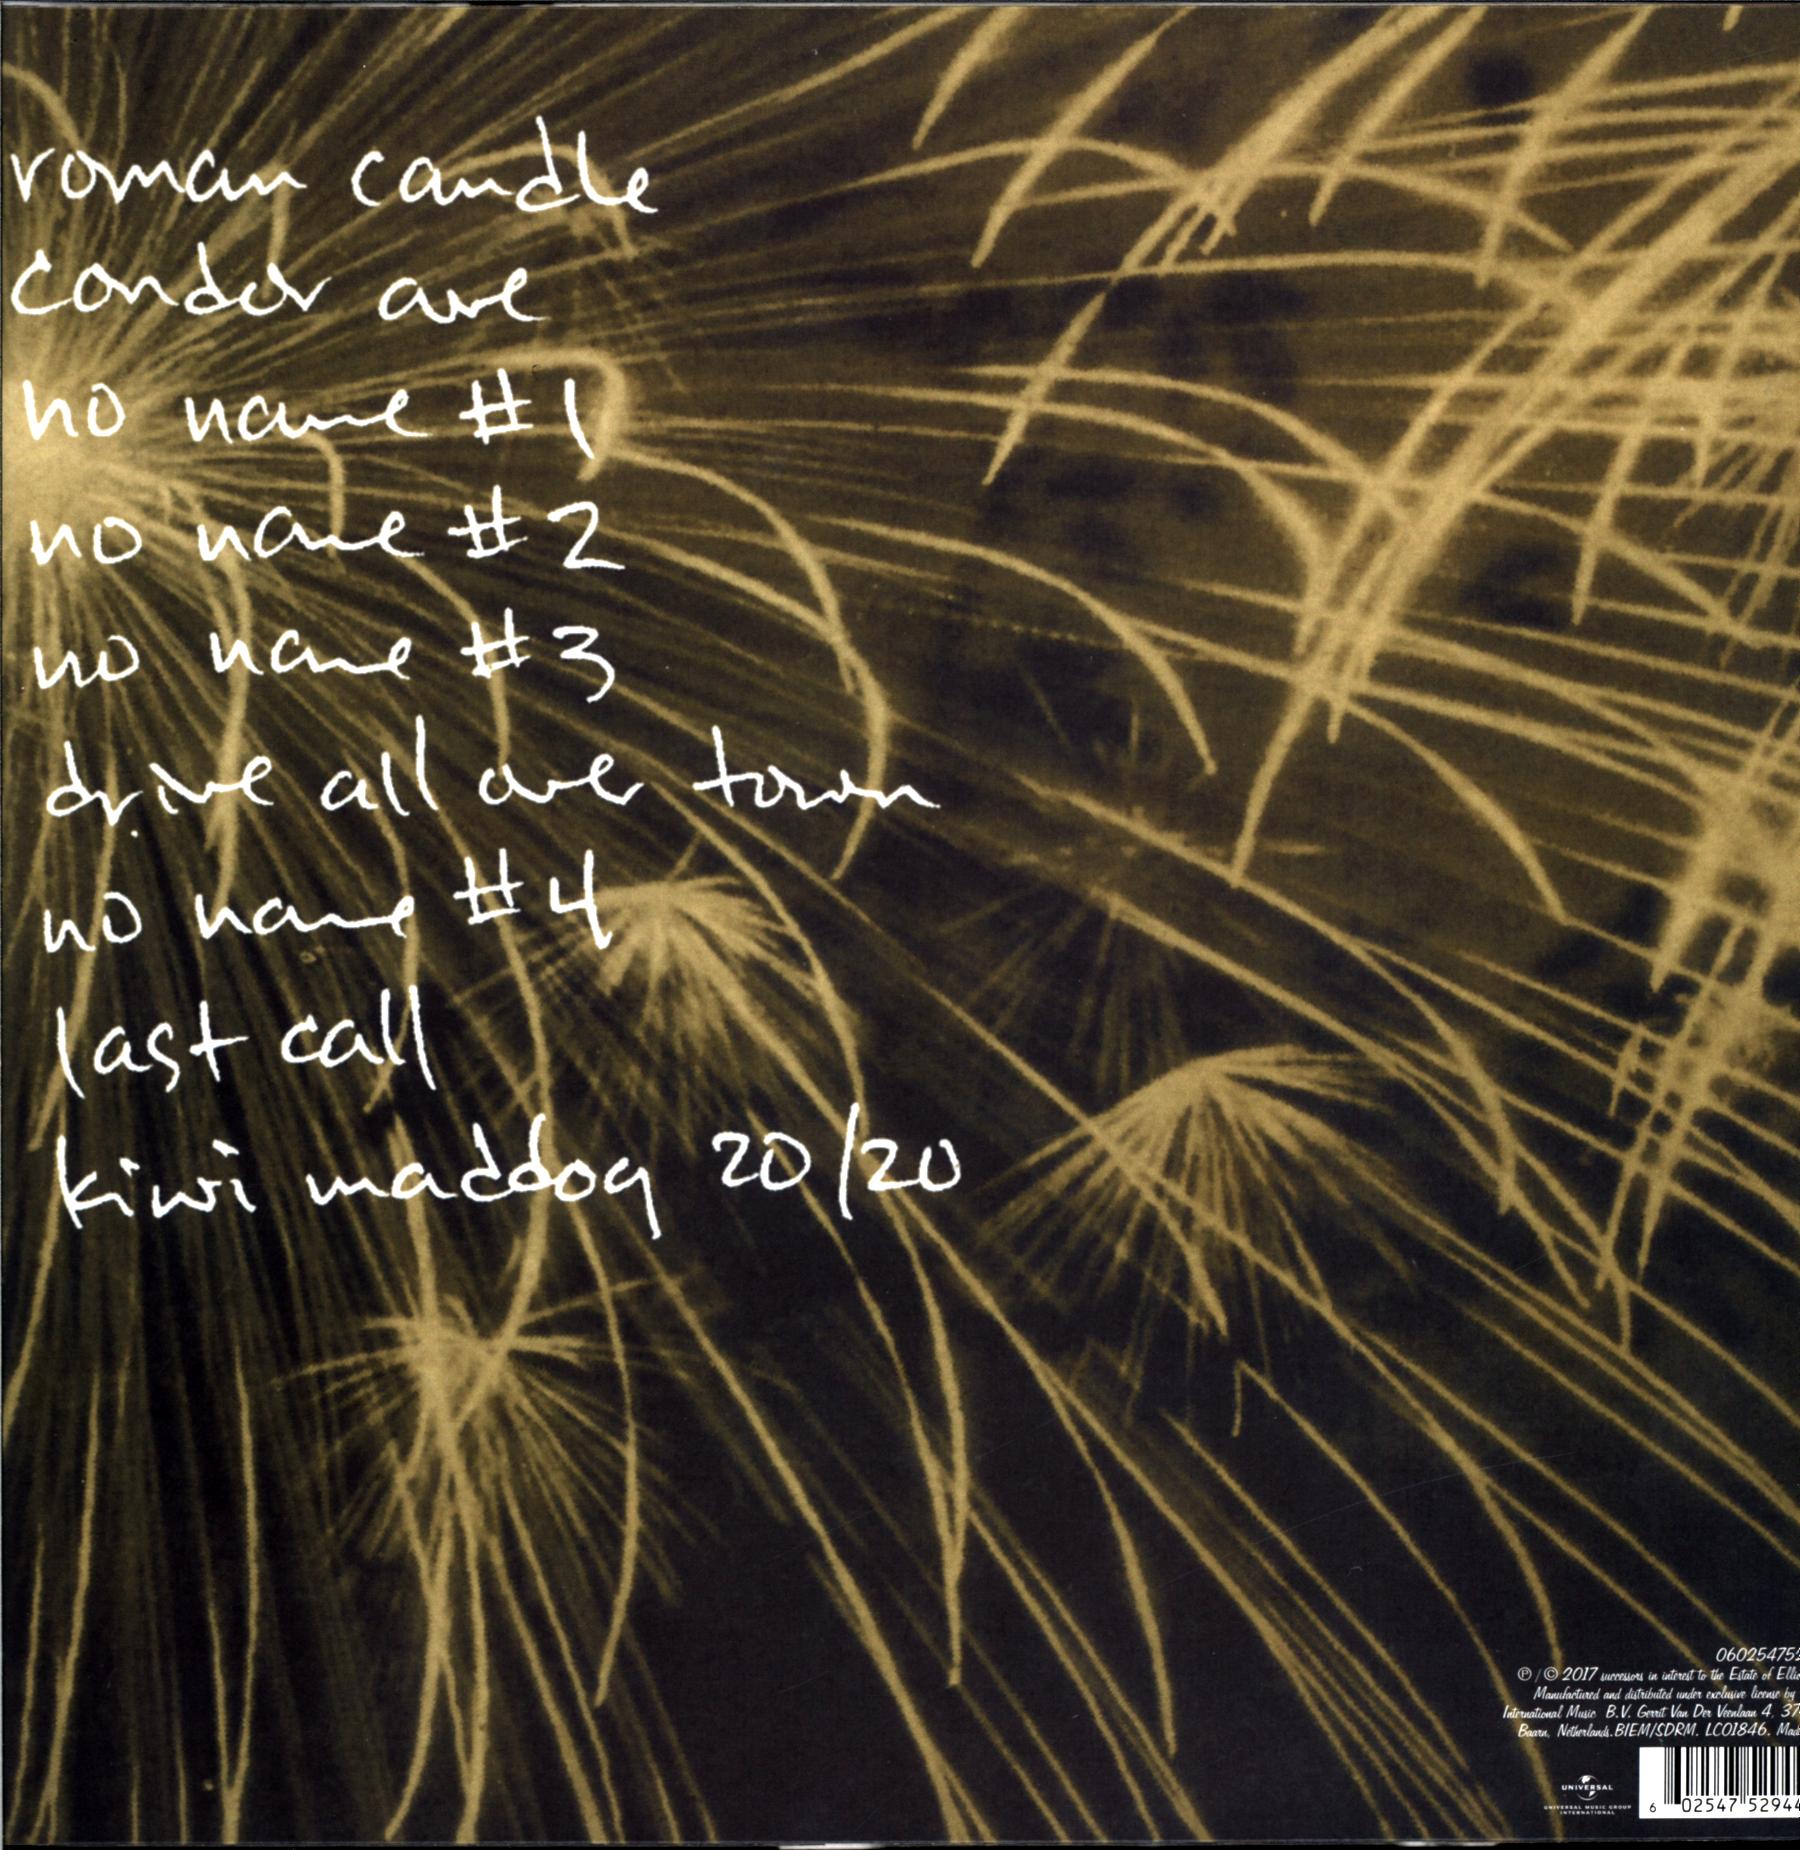 roman candle
condor ave
no name #1
no name #2
no name #3
drive all over town
no name #4
last call
kiwi maddog 20/20
060254752
℗/© 2017 successors in interest to the Estate of
Manufactured and distributed under exclusive license by
International Music B.V. Gerrit Van Der Veenlaan 4,
Baarn, Netherlands. BIEM/SDRM. LC01846.
UNIVERSAL
UNIVERSAL MUSIC GROUP
INTERNATIONAL
6 02547 52944